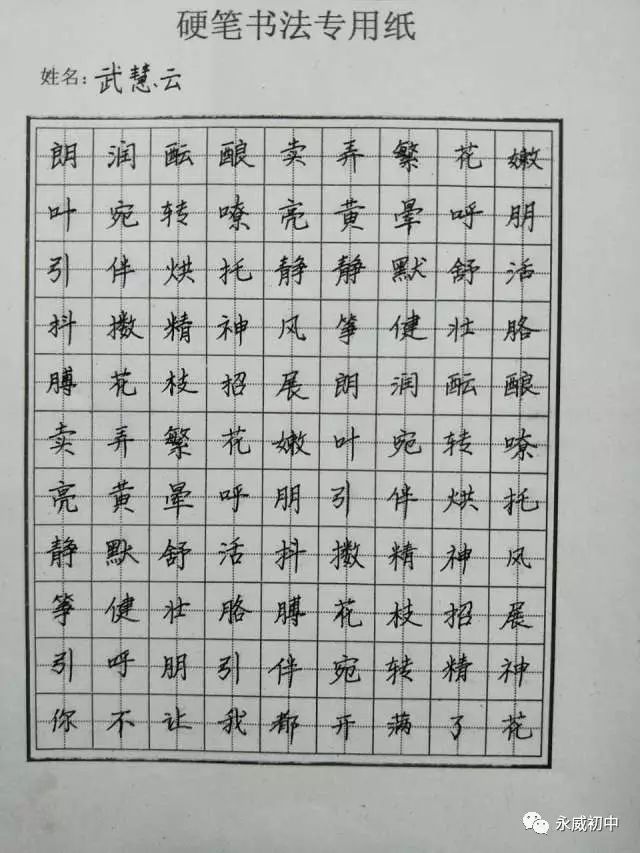 硬笔书法专用纸
姓名：武慧云
朗润酝酿卖弄繁花嫩
叶宛转嘹亮黄晕呼朋
引伴烘托静静默舒活
抖擞精神风筝健壮胳
膊花枝招展朗润酝酿
卖弄繁花嫩叶宛转嘹
亮黄晕呼朋引伴烘托
静默舒活抖擞精神风
筝健壮胳膊花枝招展
引呼朋引伴宛转精神
你不让我都开满了花
永威初中